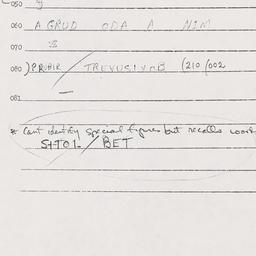 050
060 A GRUD ODA A NIM
070
080 ) PRUBIR / TREVUSIVMB (210/002
081
* Can't identify special figures but recalls
SHTO1 / BET